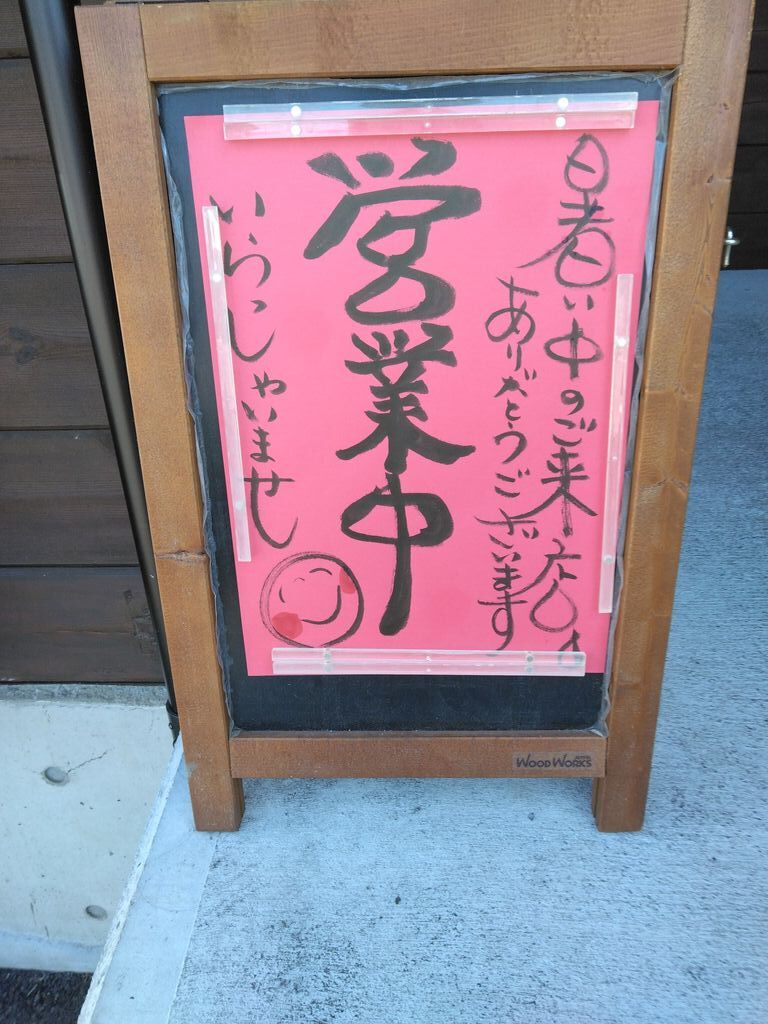 暑い中のご来店
ありがとうございます
営業中
いらっしゃいませ
WOODWORKS